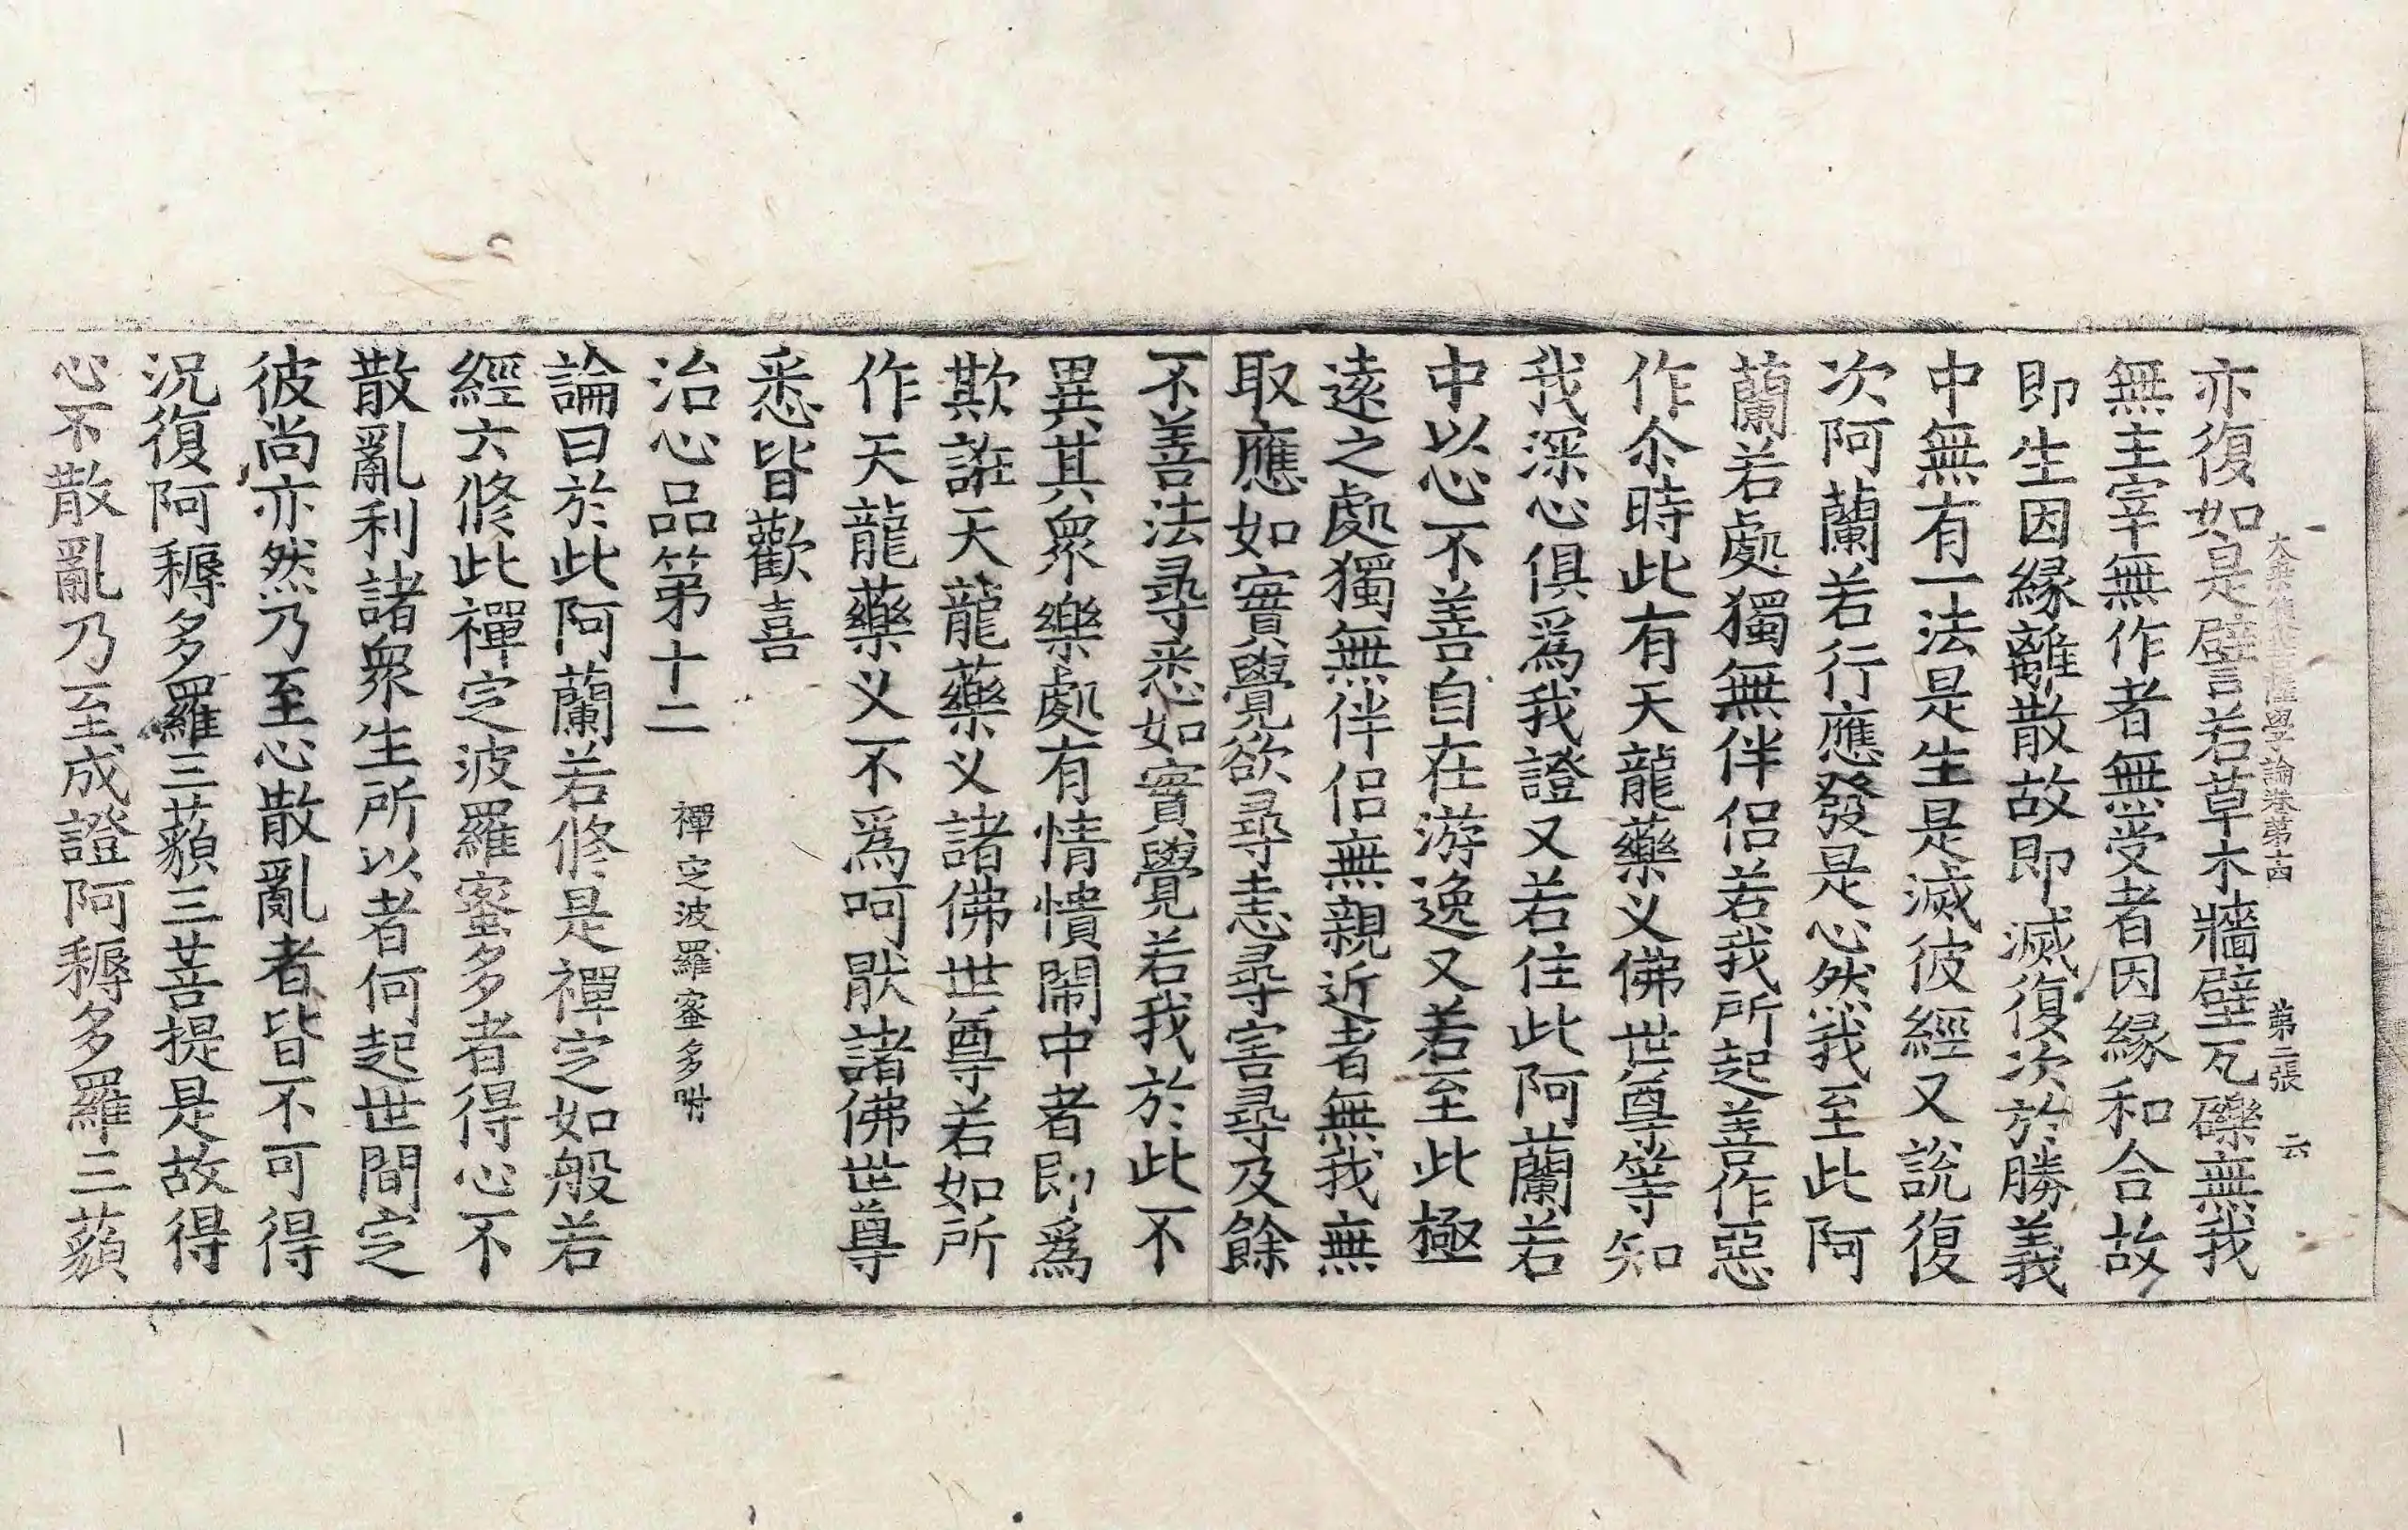 亦復如是譬若草木牆壁瓦礫無我
大乘集菩薩學論卷第十四 第二張 六
無主宰無作者無受者因緣和合故
即生因緣離散故即滅復次於勝義
中無有一法是生是滅彼經又說復
次阿蘭若行應發是心然我至此阿
蘭若處獨無伴侶若我所起善作惡
作尒時此有天龍藥叉佛世尊等知
我深心俱爲我證又若住此阿蘭若
中以心不善自在游逸又若至此極
遠之處獨無伴侶無親近者無我無
取應如實覺欲尋恚尋害尋及餘
不善法尋悉如實覺若我於此不
異其衆樂處有情憒閙中者即爲
欺誑天龍藥叉諸佛世尊若如所
作天龍藥叉不爲呵猒諸佛世尊
悉皆歡喜
治心品第十二 禪定波羅蜜多附
論曰於此阿蘭若修是禪定如般若
經六修此禪定波羅蜜多者得心不
散亂利諸衆生所以者何起世間定
彼尚亦然乃至心散亂者皆不可得
況復阿耨多羅三藐三菩提是故得
心不散亂乃至成證阿耨多羅三藐